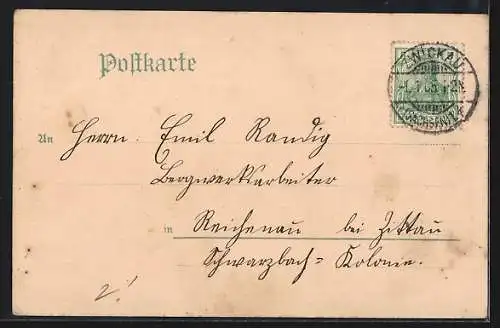 Postkarte
ZWICKAU
An Herrn Emil Randig
Bergwerksarbeiter
in Reichenau bei Zittau
Schwarzbach=Kolonie.
2!